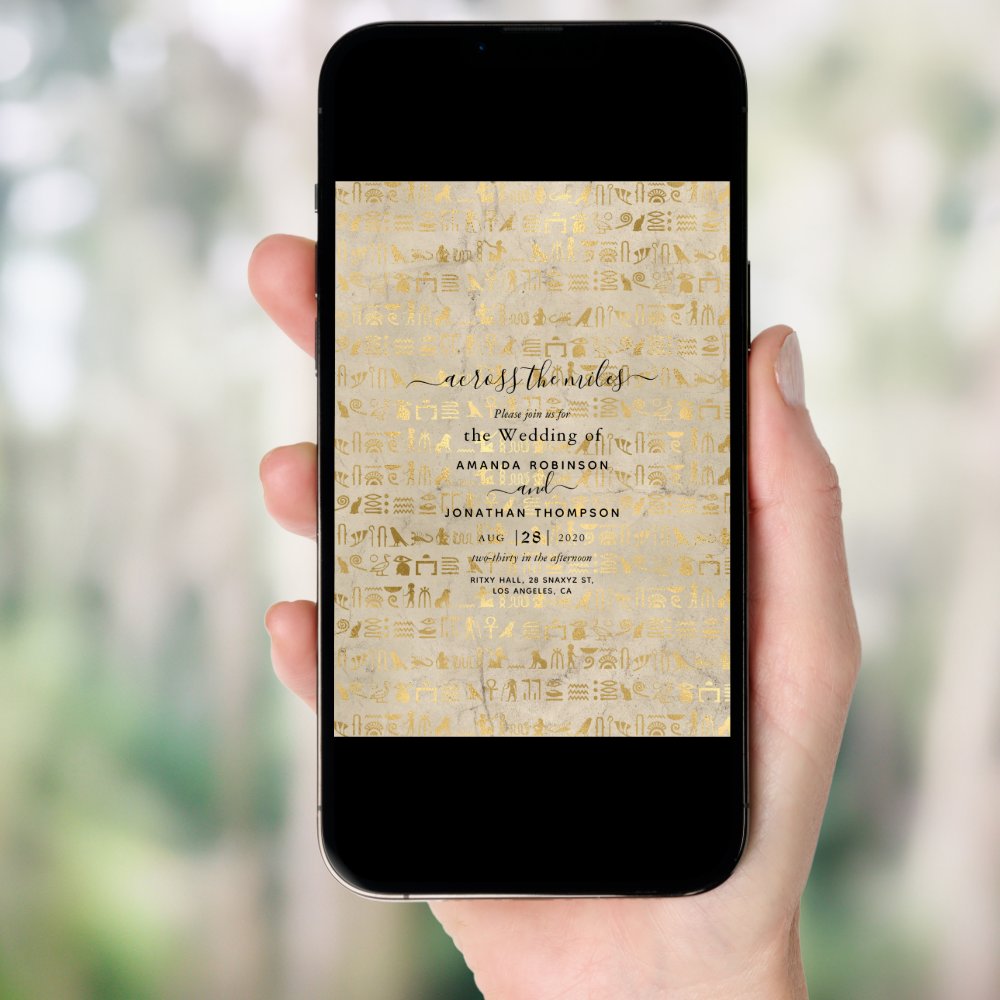 across the miles
Please join us for
the Wedding of
AMANDA ROBINSON
and
JONATHAN THOMPSON
AUG |28| 2020
two-thirty in the afternoon
RITXY HALL, 28 SNAXYZ ST,
LOS ANGELES, CA